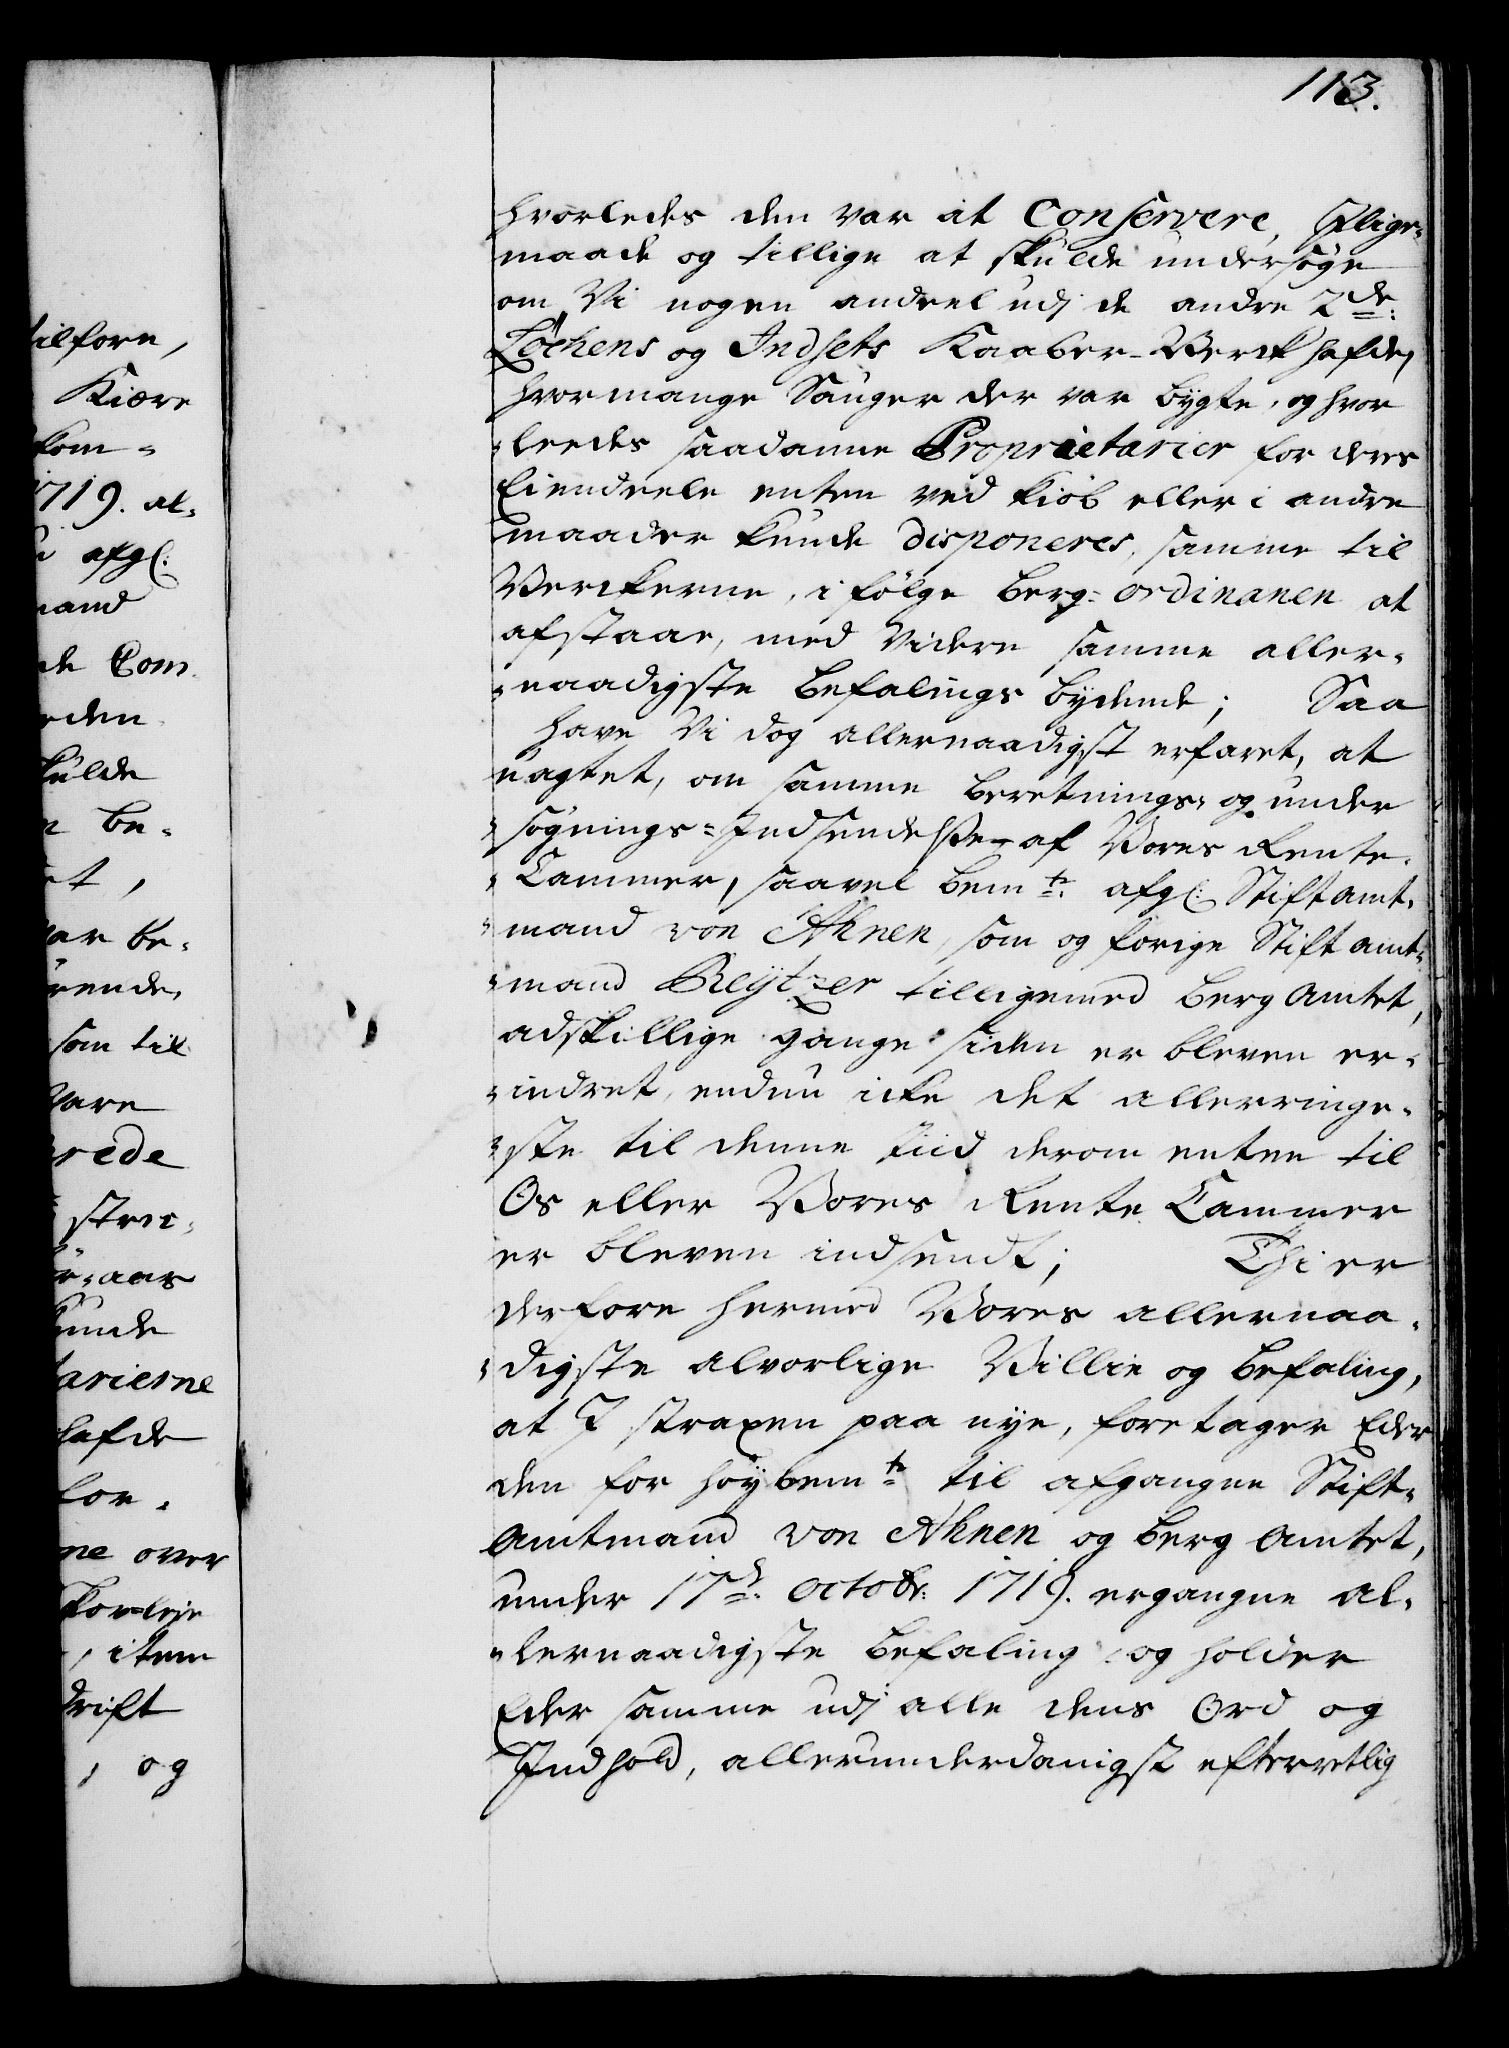 113.
hvorledes den var at Conservere, Slige-
maade og tillige at skulde undersöge
om Vi nogen andeel udj de andre 2de:
Löckens og Indsets Kaaber-Werck hafde,
hvormange Sauger der var bygte, og hvor
-leedes saadanne Proprietarier for deres
Eiendeele enten ved kiöb eller i andre
maader kunde disponeres, samme til
Verckerne, i fölge Berg-ordinancen at
afstaae, med Videre samme aller-
-naadigste Befalings bydende; Saa
have Vi dog allernaadigst erfaret, at
uagtet, om samme Beretnings- og under
-sögnings-Indsendelse af Vores Rente-
-Cammer, saavel bemte: afgl: Stiftamt-
-mand von Ahnen, som og forige Stiftamt-
-mand Reytzer tilligemed Berg Amtet,
adskillige gange siden er bleven er-
-indret, endnu icke det allerringe-
-ste til denne Tiid derom enten til
Os eller Vores Rente Cammer
er bleven indsendt; Thi er
derfore hermed Vores allernaa-
-digste alvorlige Villie og Befaling,
at I straxen paa nye, foretager Eder
den for höybemte til afgangne Stift-
Amtmand von Ahnen og Berg Amtet,
under 17de: octobr: 1719. ergangne al-
-lernaadigste Befaling og holder
Eder samme udj alle dens Ord og
Indhold, allerunderdanigst efterretlig
tilforn,
Kiære
kom-
1719. al-
afgl:
mand
de Com
den
skulde
be-
et,
var be-
rende,
som til
Vare
rede
aar
kunde
tarierne
hafde
for-
ne over
item
drift
, og